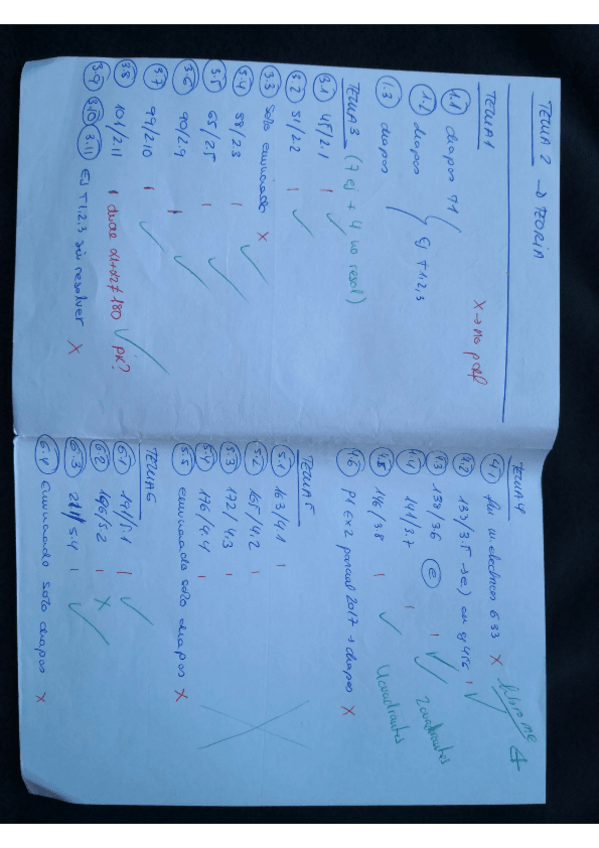 TEMA 2 → TEORIA
TEMA 1
1.1 diapos T1
1.2 diapos
1.3 diapos
Ej T1,2,3
X → No pdf
TEMA 3 (7 ej + 4 no resol)
3.1 45/2.1 | ✓
3.2 51/2.2 | ✓
3.3 solo enunciado X
3.4 58/2.3 | ✓
3.5 65/2.5 | ✓
3.6 90/2.9 | ✓
3.7 99/2.10 | ✓
3.8 101/2.11 | ✓ px?
3.9 3.10 3.11 Ej T1,2,3 sin resolver X
TEMA 4
X
4.2 137/3.5 | ✓
4.3 138/3.6 e | ✓ 2 cuadrantes
4.4 141/3.7 | ✓
4.5 146/3.8 | ✓ 4 cuadrantes
4.6 P1 Ex 2 parcial 2017 → diapos X
TEMA 5
5.1 163/4.1 |
5.2 165/4.2 |
5.3 172/4.3 |
5.4 176/4.4 |
5.5 enunciado solo diapos X
TEMA 6
6.1 191/5.1 | ✓
6.2 196/5.2 | X
6.3 211/5.4 | ✓
6.4 enunciado solo diapos X